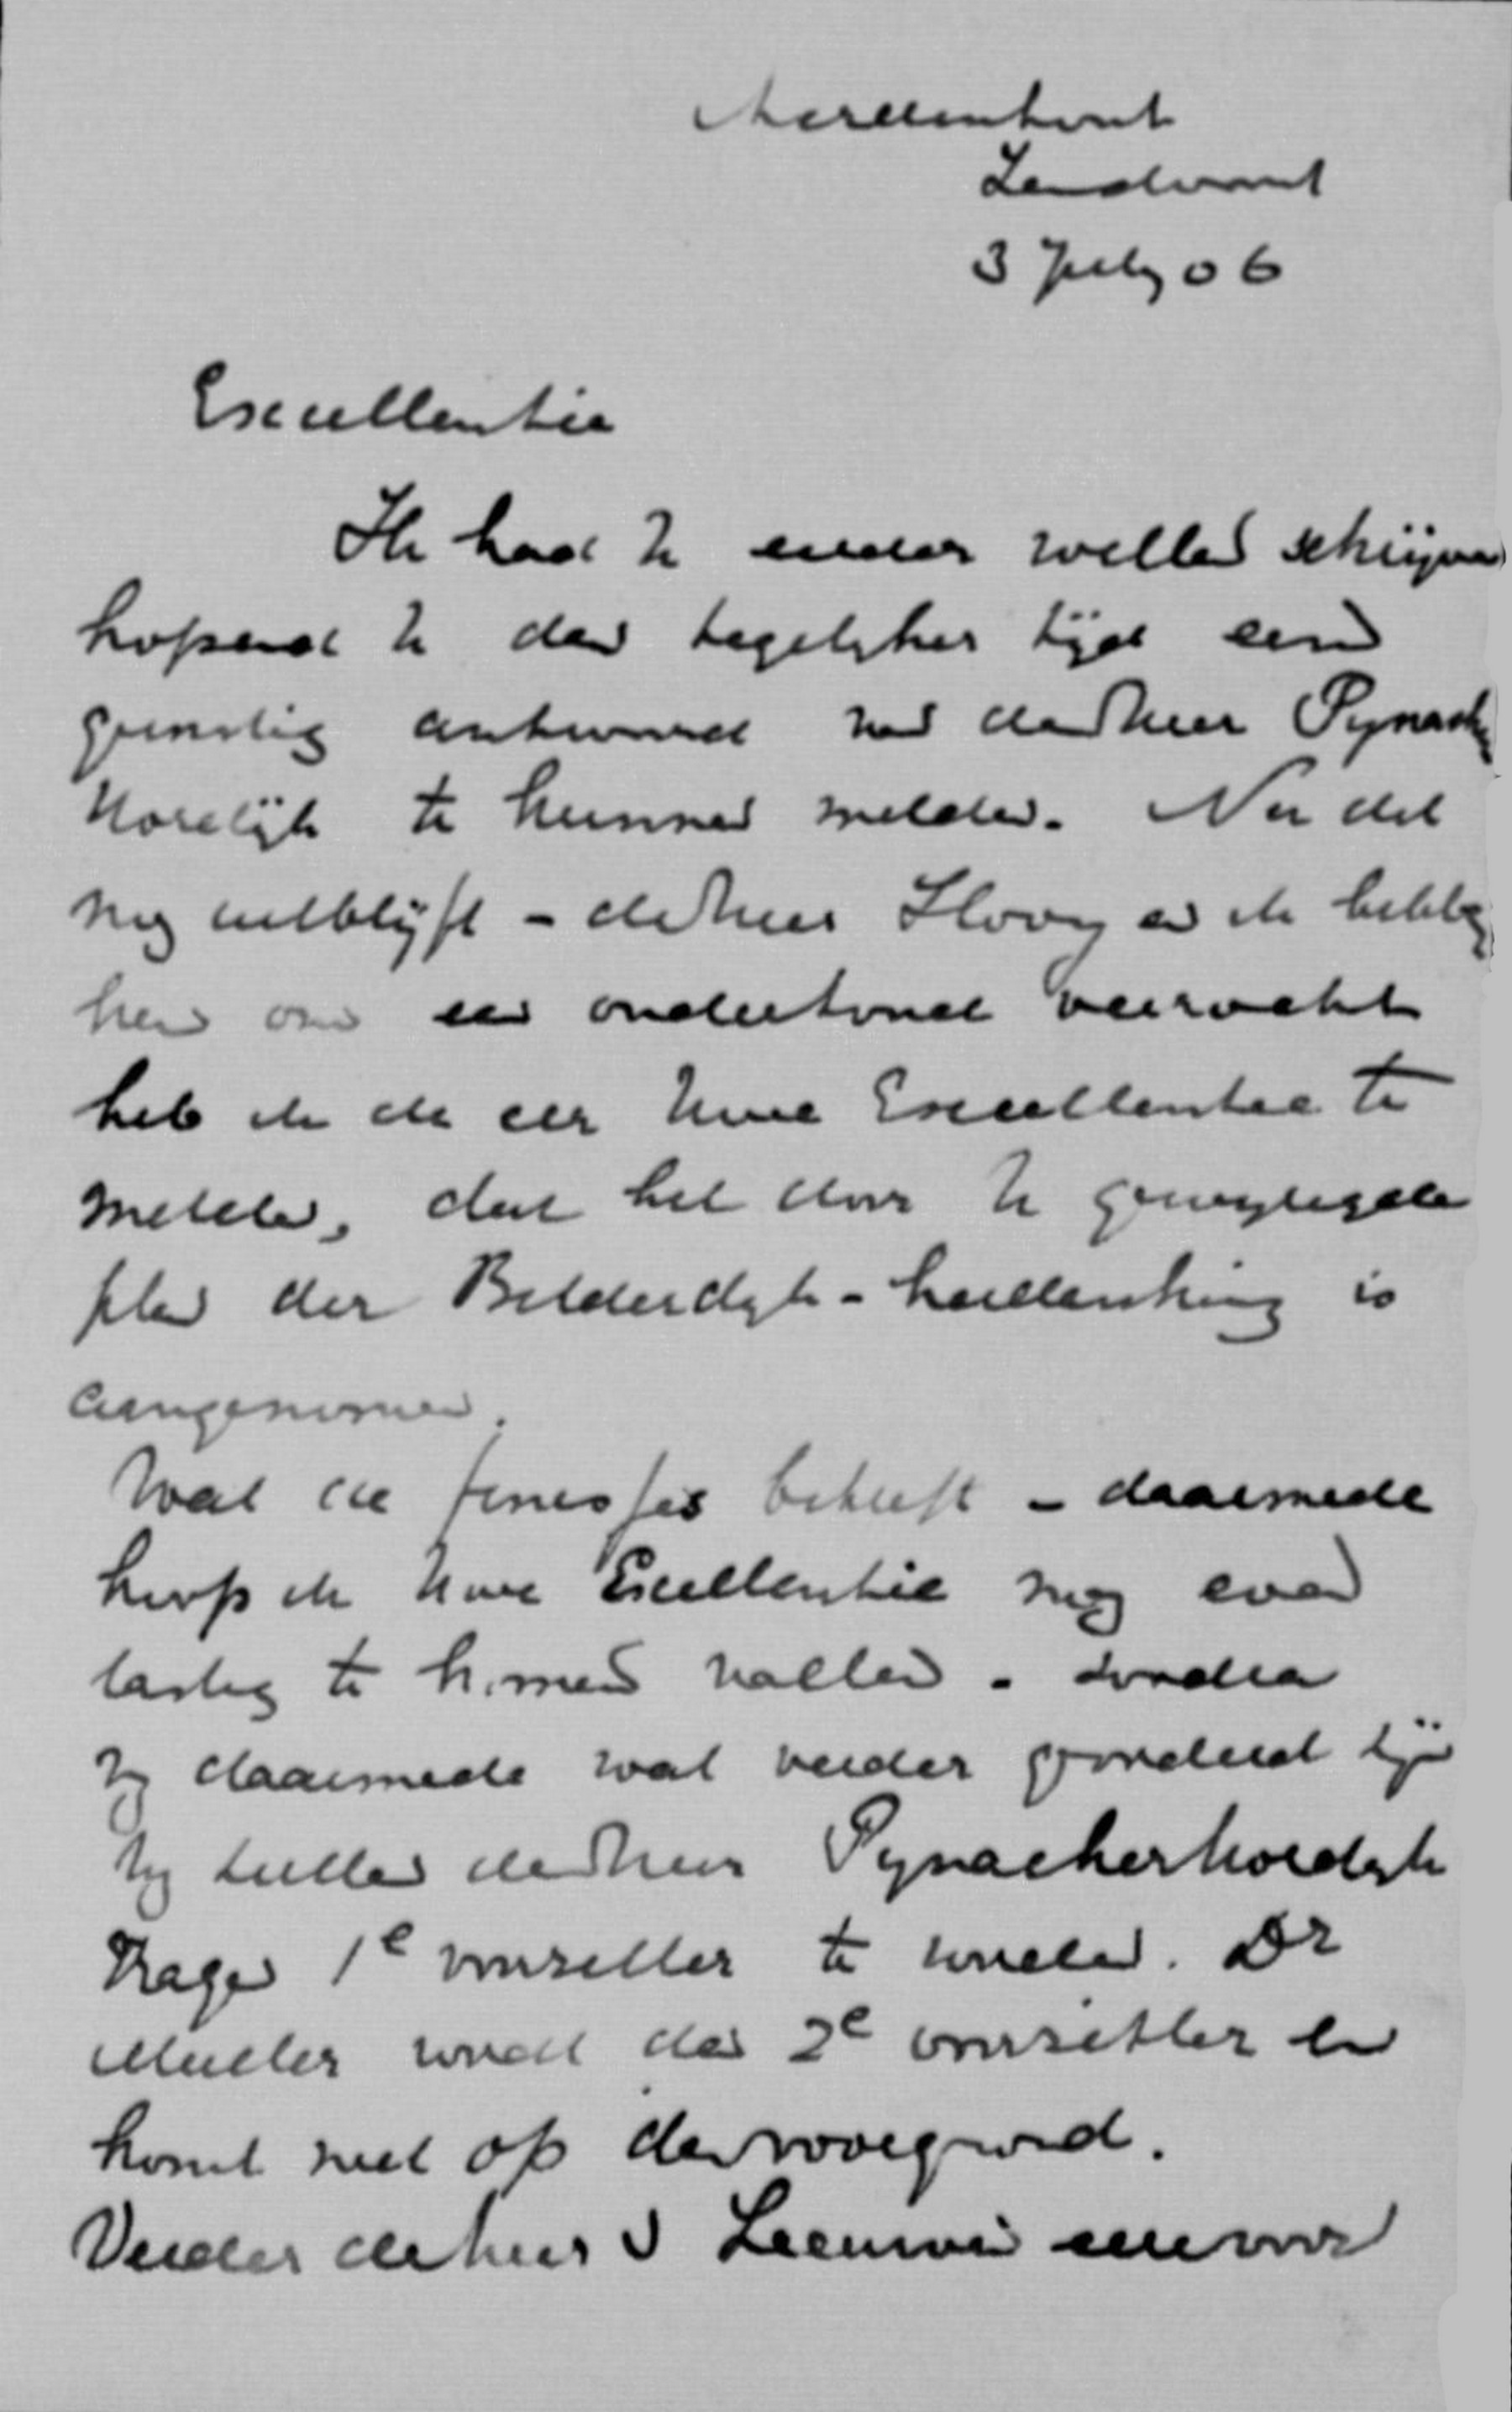 Aerdenhout
Zandvoort
3 July 06
Excellentie
Ik had U eerder willen schrijven
hopend U dan tegelyker tijd een
gunstig antwoord van den heer Pynacker
Hordijk te kunnen melden. Nu dit
nog uitblijft – de heer Hovy en ik hebben
hem om een onderhoud verzocht
heb ik de eer Uwe Excellentie te
melden, dat het door U gewyzigde
plan der Bilderdyk-herdenking is
aangenomen.
Wat de finesses betreft – daarmede
hoop ik Uwe Excellentie nog even
lastig te komen vallen – zoodra
wy daarmede wat verder gevorderd zijn
Wy zullen den heer Pynacker Hordyk
vragen 1e voorzitter te worden. Dr
Muller wordt dan 2e voorzitter en
komt niet op den voorgrond.
Verder de heer v Leeuwen